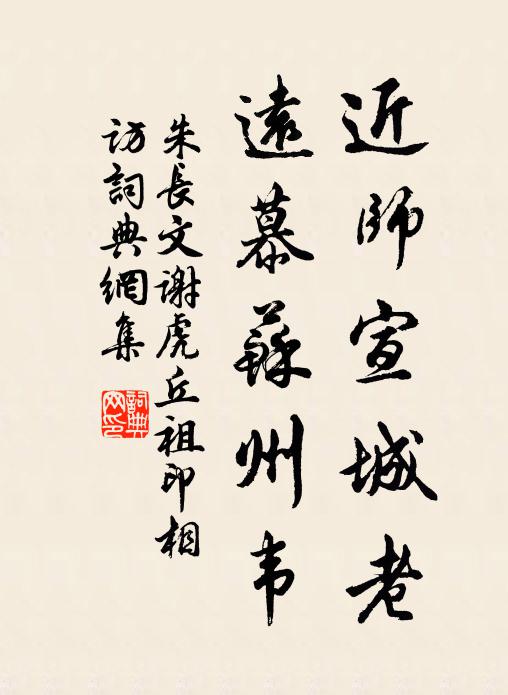 近師宣城老
遠慕蘇州韦
朱長文谢虎丘祖印相
访詞典網集
詞典
网印